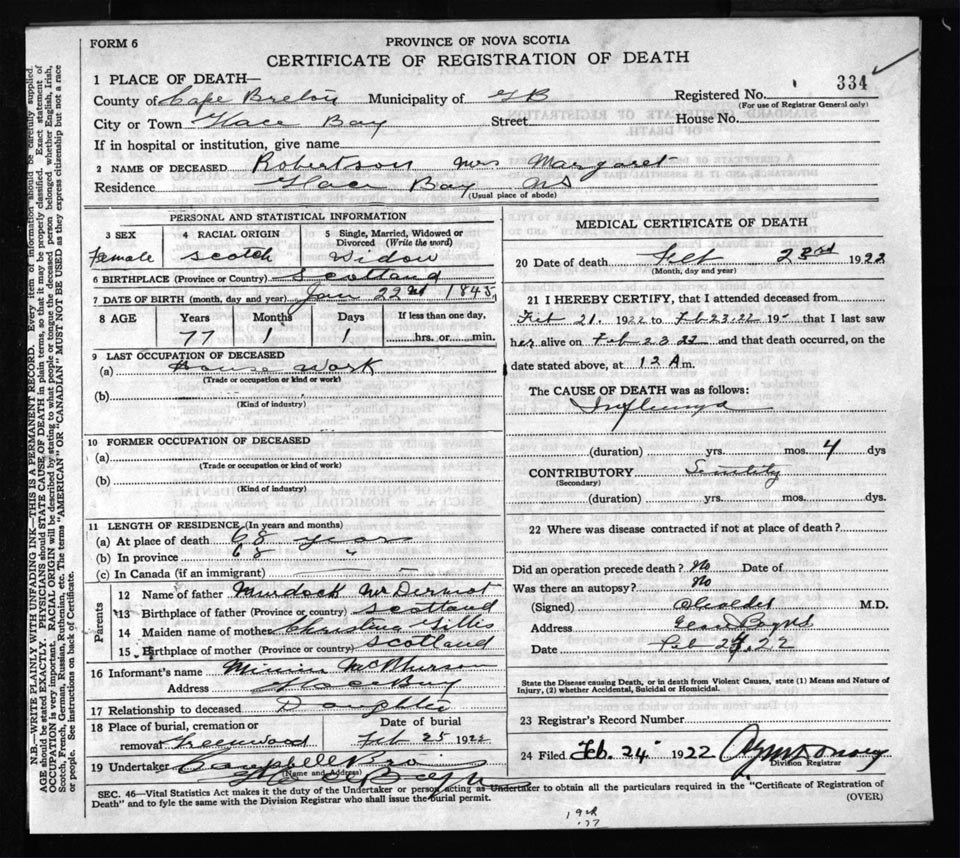 FORM 6
PROVINCE OF NOVA SCOTIA
CERTIFICATE OF REGISTRATION OF DEATH
334
1 PLACE OF DEATH—
County of Cape Breton Municipality of GB Registered No.
(For use of Registrar General only)
City or Town Glace Bay Street House No.
If in hospital or institution, give name
2 NAME OF DECEASED Robertson Mrs Margaret
Residence Glace Bay NS
(Usual place of abode)
PERSONAL AND STATISTICAL INFORMATION
3 SEX 4 RACIAL ORIGIN 5 Single, Married, Widowed or Divorced (Write the word)
Female Scotch Widow
6 BIRTHPLACE (Province or Country) Scotland
7 DATE OF BIRTH (month, day and year) Jan 22nd 1845
8 AGE Years Months Days If less than one day,
77 1 1 hrs. or min.
9 LAST OCCUPATION OF DECEASED
(a) House Work
(Trade or occupation or kind or work)
(b)
(Kind of industry)
10 FORMER OCCUPATION OF DECEASED
(a)
(Trade or occupation or kind of work)
(b)
(Kind of industry)
11 LENGTH OF RESIDENCE (In years and months)
(a) At place of death 68 years
(b) In province 68 "
(c) In Canada (if an immigrant)
Parents
12 Name of father Murdock McDermot
13 Birthplace of father (Province or country) Scotland
14 Maiden name of mother Christina Gillis
15 Birthplace of mother (Province or country) Scotland
16 Informant's name Minnie McPherson
Address Glace Bay
17 Relationship to deceased Daughter
18 Place of burial, cremation or Date of burial
removal Greenwood Feb 25 1922
19 Undertaker Campbell Bro
(Name and Address)
Glace Bay NS
MEDICAL CERTIFICATE OF DEATH
20 Date of death Feb 23rd 1922
(Month, day and year)
21 I HEREBY CERTIFY, that I attended deceased from
Feb 21. 1922 to Feb 23.22 19 that I last saw
her alive on Feb 23 22 and that death occurred, on the
date stated above, at 12 A m.
The CAUSE OF DEATH was as follows:
Influenza
(duration) yrs. mos. 4 dys
CONTRIBUTORY Senility
(Secondary)
(duration) yrs. mos. dys.
22 Where was disease contracted if not at place of death?
Did an operation precede death? No Date of
Was there an autopsy? No
(Signed) M.D.
Address
Date Feb 22
State the Disease causing Death, or in death from Violent Causes, state (1) Means and Nature of
Injury, (2) whether Accidental, Suicidal or Homicidal.
23 Registrar's Record Number
24 Filed Feb. 24 1922
Division Registrar
SEC. 46—Vital Statistics Act makes it the duty of the Undertaker or person acting as Undertaker to obtain all the particulars required in the "Certificate of Registration of
Death" and to fyle the same with the Division Registrar who shall issue the burial permit.
(OVER)
N.B.—WRITE PLAINLY WITH UNFADING INK—THIS IS A PERMANENT RECORD. Every item of information should be carefully supplied.
AGE should be stated EXACTLY. PHYSICIANS should STATE CAUSE OF DEATH in plain terms, so that it may be properly classified. Exact statement of
OCCUPATION is very important. RACIAL ORIGIN will be described by stating to what people or tongue the deceased person belonged whether English, Irish,
Scotch, French, German, Russian, Ruthenian, etc. The terms "AMERICAN" OR "CANADIAN" MUST NOT BE USED as they express citizenship but not a race
or people. See instructions on back of Certificate.